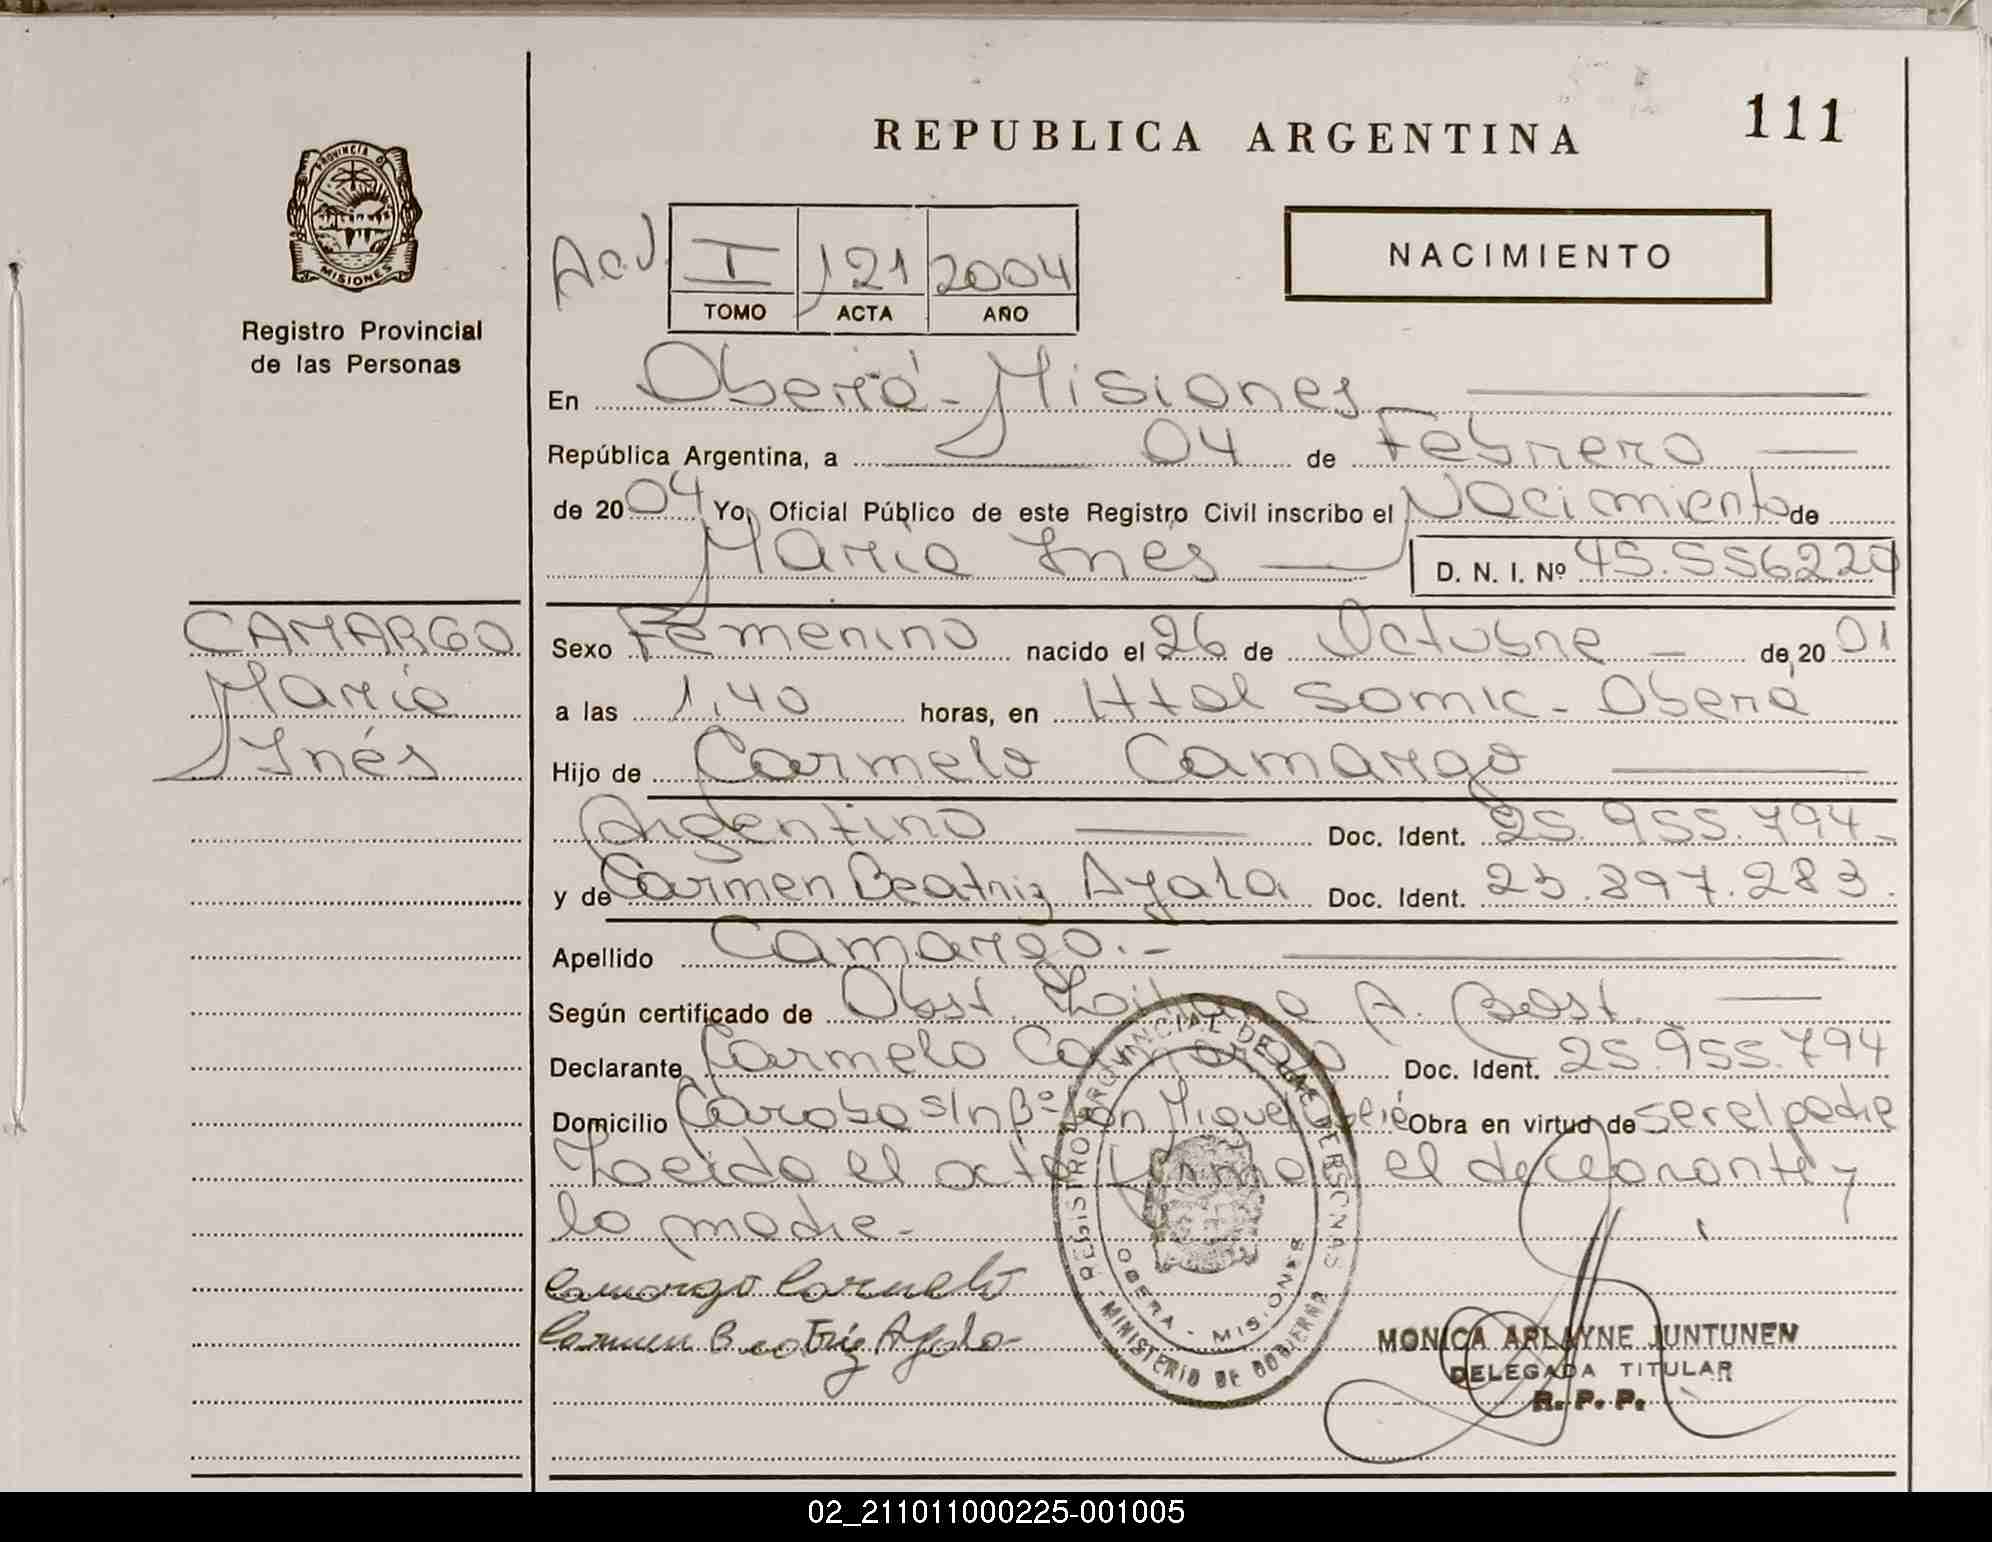 PROVINCIA DE
MISIONES
Registro Provincial
de las Personas
REPUBLICA ARGENTINA
111
I 121 2004
TOMO ACTA AÑO
NACIMIENTO
En Oberá - Misiones
República Argentina, a 04 de Febrero
de 2004 Yo, Oficial Público de este Registro Civil inscribo el Nacimiento de
María Inés D. N. I. Nº 45.556220
CAMARGO
María
Inés
Sexo Femenino nacido el 26 de Octubre de 2001
a las 1,40 horas, en Htal Samic - Oberá
Hijo de Carmelo Camargo
Argentino Doc. Ident. 25.955.794-
y de Carmen Beatriz Ayala Doc. Ident. 25.897.283.
Apellido Camargo.-
Según certificado de Obst. A. Best.
Declarante Carmelo Camargo Doc. Ident. 25.955.794
Domicilio Caroba s/n Bº San Miguel Obra en virtud de ser el padre
Leída el acta firma el declarante y
la madre-
Camargo Carmelo
Carmen Beatriz Ayala
REGISTRO PROVINCIAL DE LAS PERSONAS
OBERA - MISIONES
MINISTERIO DE GOBIERNO
MONICA ARLAYNE JUNTUNEN
DELEGADA TITULAR
R. P. P.
02_211011000225-001005